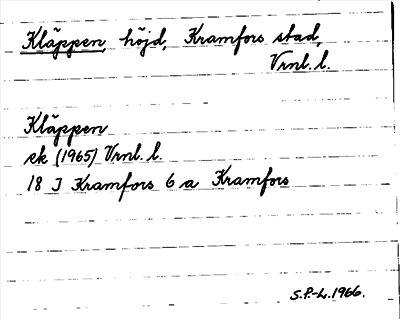 Kläppen, höjd, Kramfors stad,
Vrnl. l.
Kläppen
ek (1965) Vrnl. l.
18 I Kramfors 6 a Kramfors
S.P.-L. 1966.